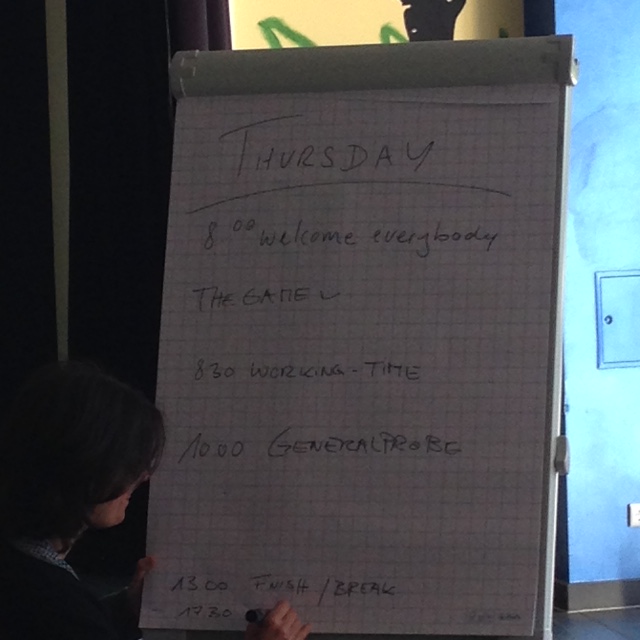 THURSDAY
8 00 welcome everybody
THE GAME
830 WORKING-TIME
10.00 GENERALPROBE
13.00 FINISH / BREAK
17.30